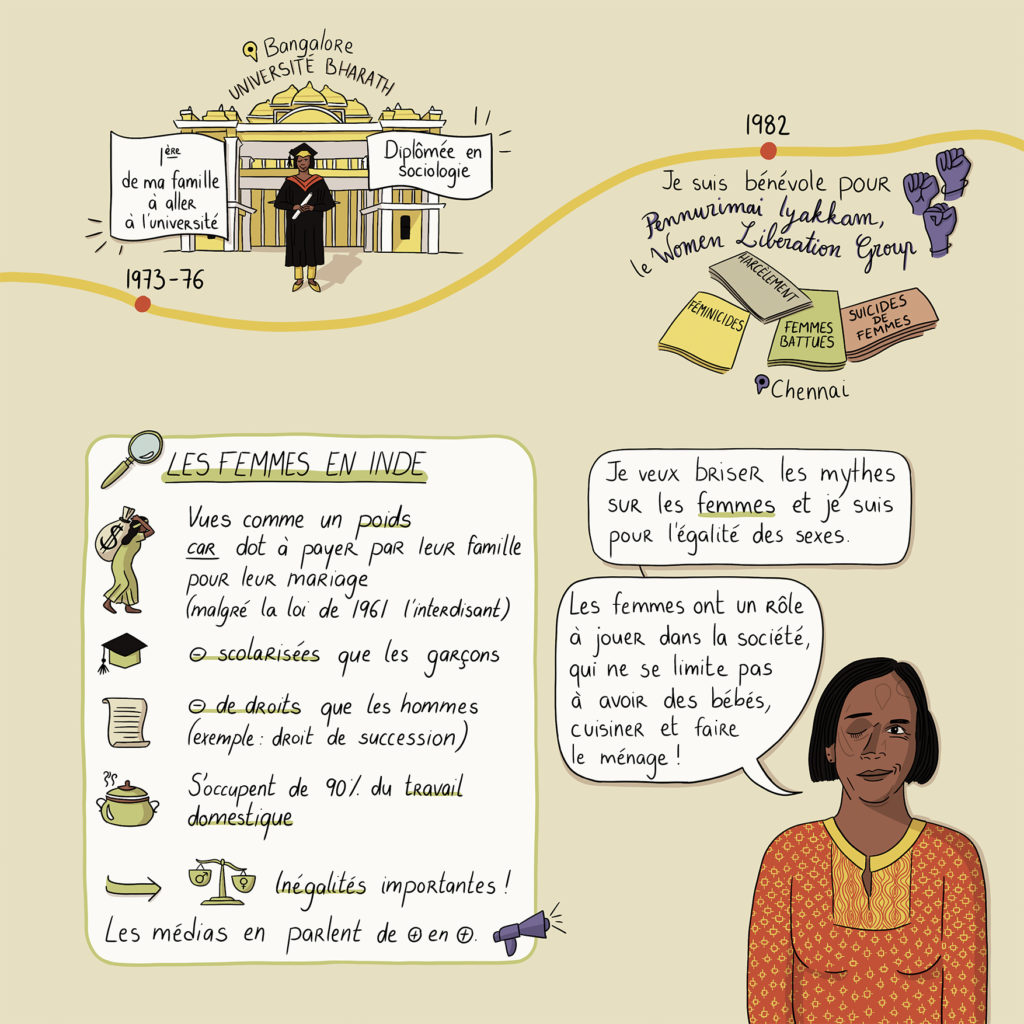 Bangalore
UNIVERSITÉ BHARATH
1ère
de ma famille
à aller
à l'université
Diplômée en
sociologie
1973-76
1982
Je suis bénévole pour
Pennurimai Iyakkam,
le Women Liberation Group
HARCÈLEMENT
FÉMINICIDES
FEMMES
BATTUES
SUICIDES
DE
FEMMES
Chennai
LES FEMMES EN INDE
Vues comme un poids
car dot à payer par leur famille
pour leur mariage
(malgré la loi de 1961 l'interdisant)
⊖ scolarisées que les garçons
⊖ de droits que les hommes
(exemple : droit de succession)
S'occupent de 90% du travail
domestique
Inégalités importantes !
Les médias en parlent de ⊕ en ⊕.
Je veux briser les mythes
sur les femmes et je suis
pour l'égalité des sexes.
Les femmes ont un rôle
à jouer dans la société,
qui ne se limite pas
à avoir des bébés,
cuisiner et faire
le ménage !